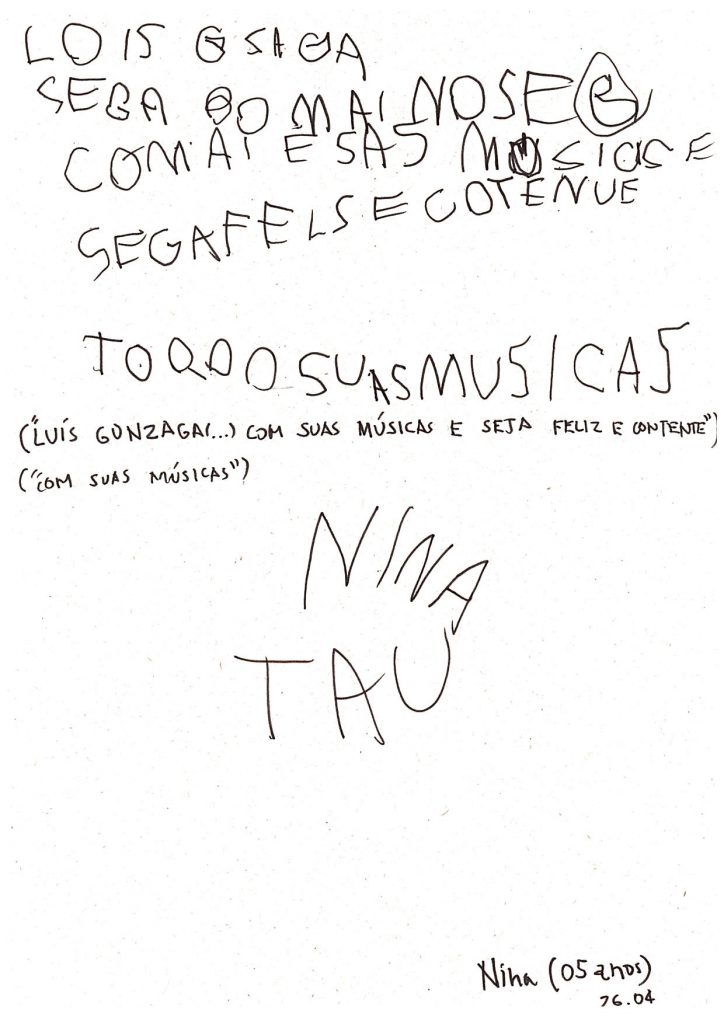 LOIS GSAGA
SEBA BO MAI NOSE B
COMAI E SAS MUSICAS E
SEGAFELS E COTENUE
TOQDO SUAS MUSICAS
("LUÍS GONZAGA(...) COM SUAS MÚSICAS E SEJA FELIZ E CONTENTE")
("COM SUAS MÚSICAS")
NINA
TAU
Nina (05 anos)
26.04